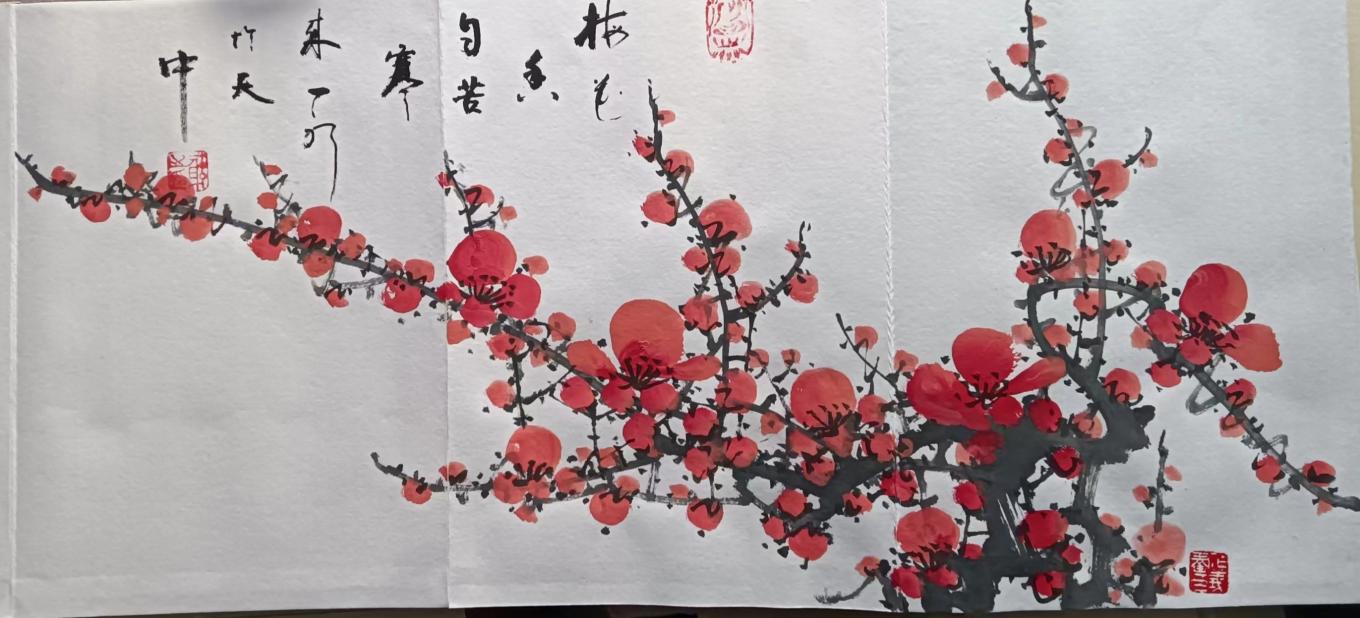 梅花
香
自苦
寒
来丁卯
竹天
中